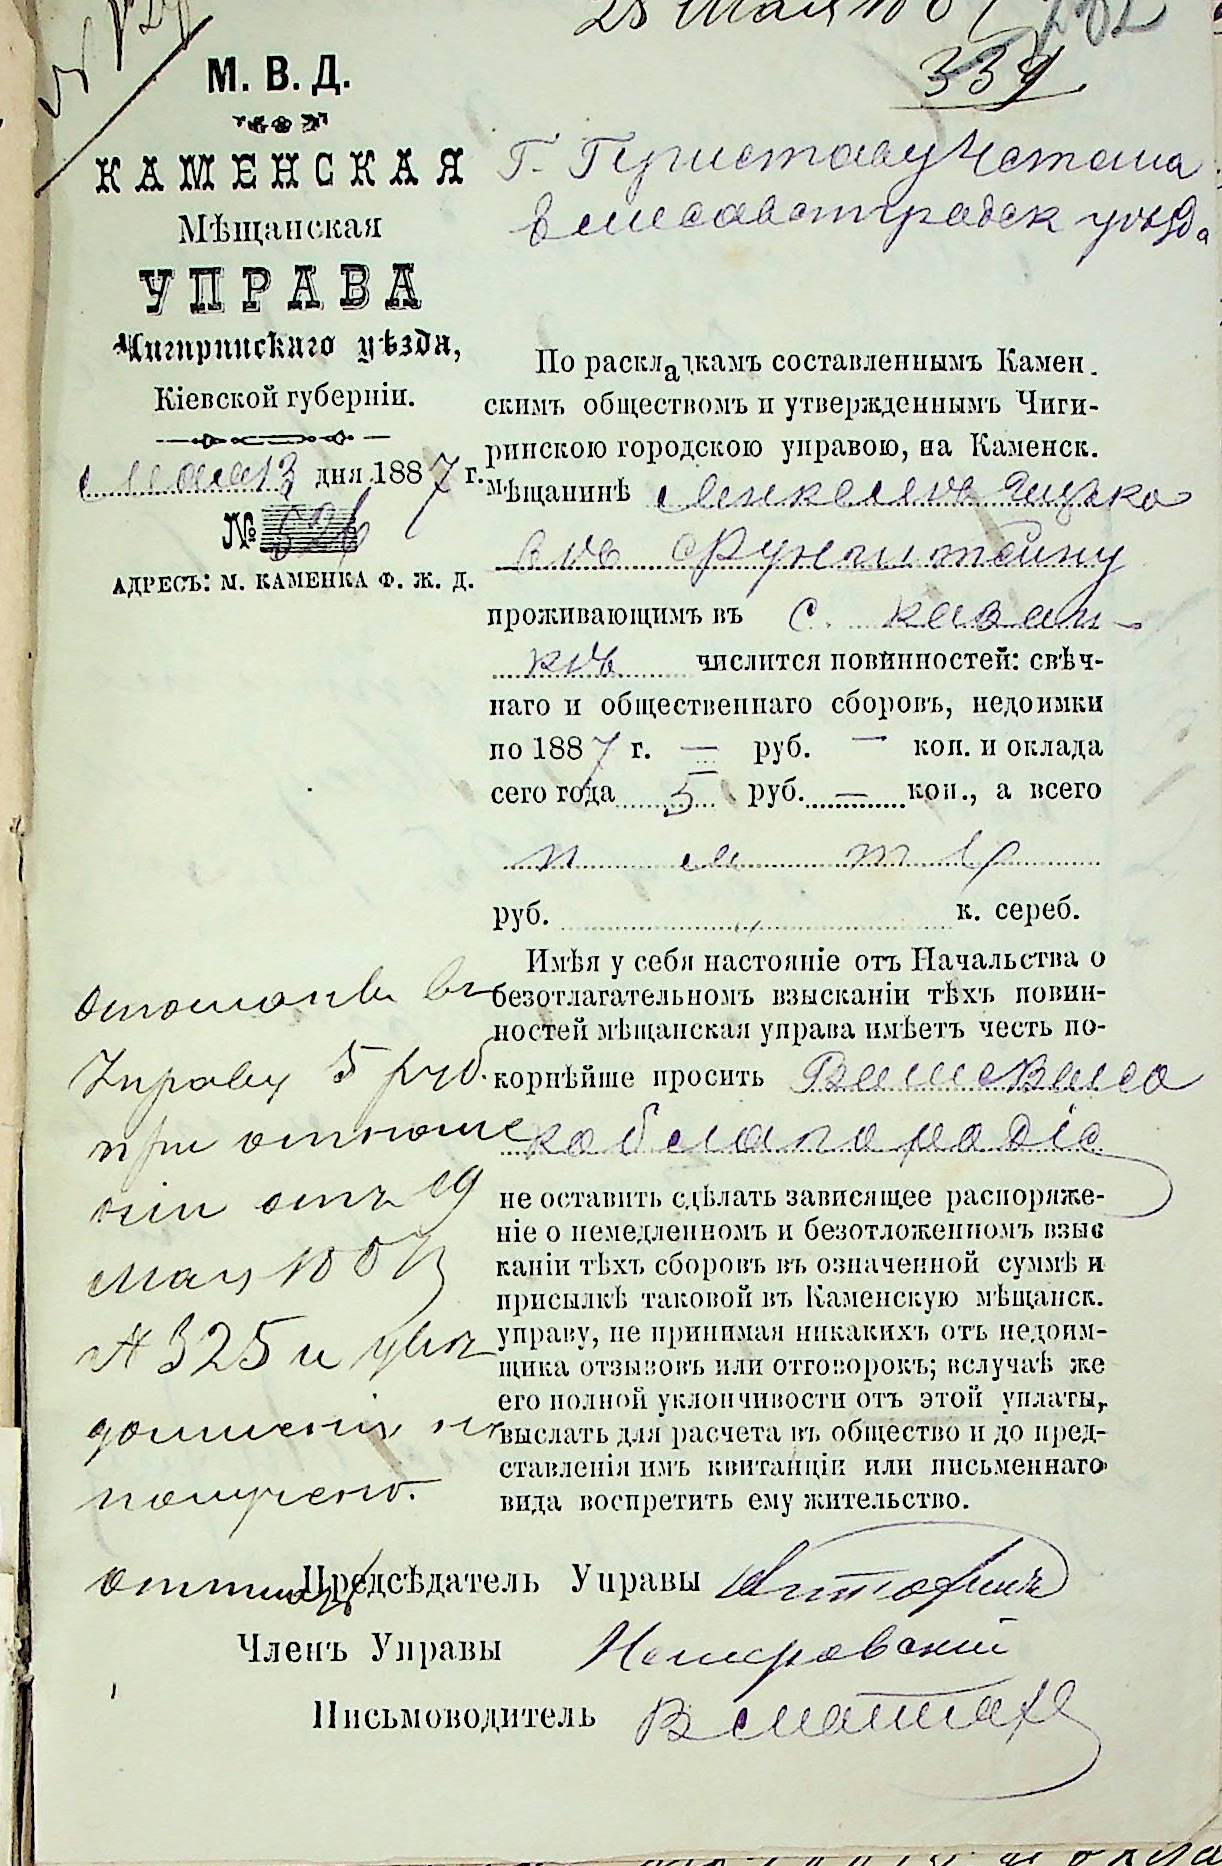 28 Мая 188
334
М. В. Д.
КАМЕНСКАЯ
Мѣщанская
УПРАВА
Чигиринскаго уѣзда,
Кіевской губерніи.
Мая 13 дня 1887 г.
№ 526
АДРЕСЪ: М. КАМЕНКА Ф. Ж. Д.
Г. Приставу 4 стана
Елисаветградск уѣзда
По раскладкамъ составленнымъ Камен.
скимъ обществомъ и утвержденнымъ Чиги-
ринскою городскою управою, на Каменск.
мѣщанинѣ
проживающимъ въ с. Казан-
кѣ числится повинностей: свѣч-
наго и общественнаго сборовъ, недоимки
по 1887 г. — руб. — коп. и оклада
сего года 5 руб. — коп., а всего
пять
руб. к. сереб.
Имѣя у себя настояніе отъ Начальства о
безотлагательномъ взысканіи тѣхъ повин-
ностей мѣщанская управа имѣетъ честь по-
корнѣйше просить Ваше Высо
коблагородіе
не оставить сдѣлать зависящее распоряже-
ніе о немедленномъ и безотложенномъ взыс
каніи тѣхъ сборовъ въ означенной суммѣ и
присылкѣ таковой въ Каменскую мѣщанск.
управу, не принимая никакихъ отъ недоим-
щика отзывовъ или отговорокъ; вслучаѣ же
его полной уклончивости отъ этой уплаты,
выслать для расчета въ общество и до пред-
ставленія имъ квитанціи или письменнаго
вида воспретить ему жительство.
въ
Управу 5 руб.
при отноше
ніи отъ 19
Мая 1887
№ 325 и увѣ
домленія не
получено.
Предсѣдатель Управы
Членъ Управы
Письмоводитель